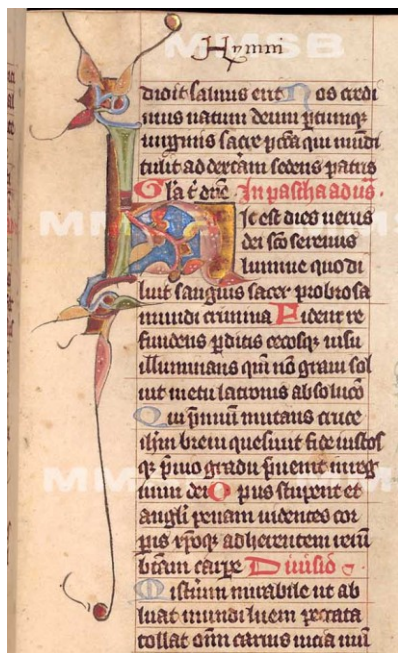 Hymni
credit saluus erit Nos credi
mus natum deum ptumqȝ
uirginis sacre pcca qui mundi
tulit ad dextam sedens patris
Gla t dne In pascha ad uus
ic est dies uerus
dei sco serenus
lumine quo di
luit sanguis sacer probrosa
mundi crimina Fidem re
fundens pditis cecosqȝ uisu
illuminans que no graui sol
uit metu latronis absoluco
Qui pmiu mutans cruce
ihm breui quesiuit fide iustos
qȝ puio gradu puenit in reg
num dei Opus stupent et
angli penam uidentes cor
pis xpoqȝ adherentem reum
btam carpe Diuisio
Mistium mirabile ut ab
luat mundi luem peccata
tollat oim carnis uicia mu